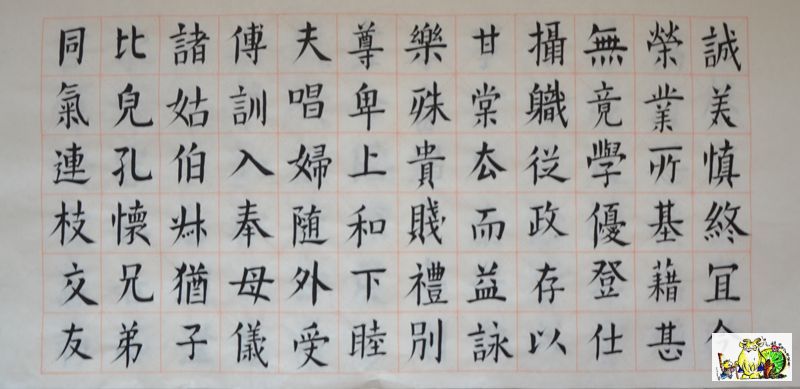 誠美慎終宜
榮業所基藉甚
無竟學優登仕
攝職從政存以
甘棠去而益詠
樂殊貴賤禮別
尊卑上和下睦
夫唱婦随外受
傅訓入奉母儀
諸姑伯叔猶子
比兒孔懷兄弟
同氣連枝交友